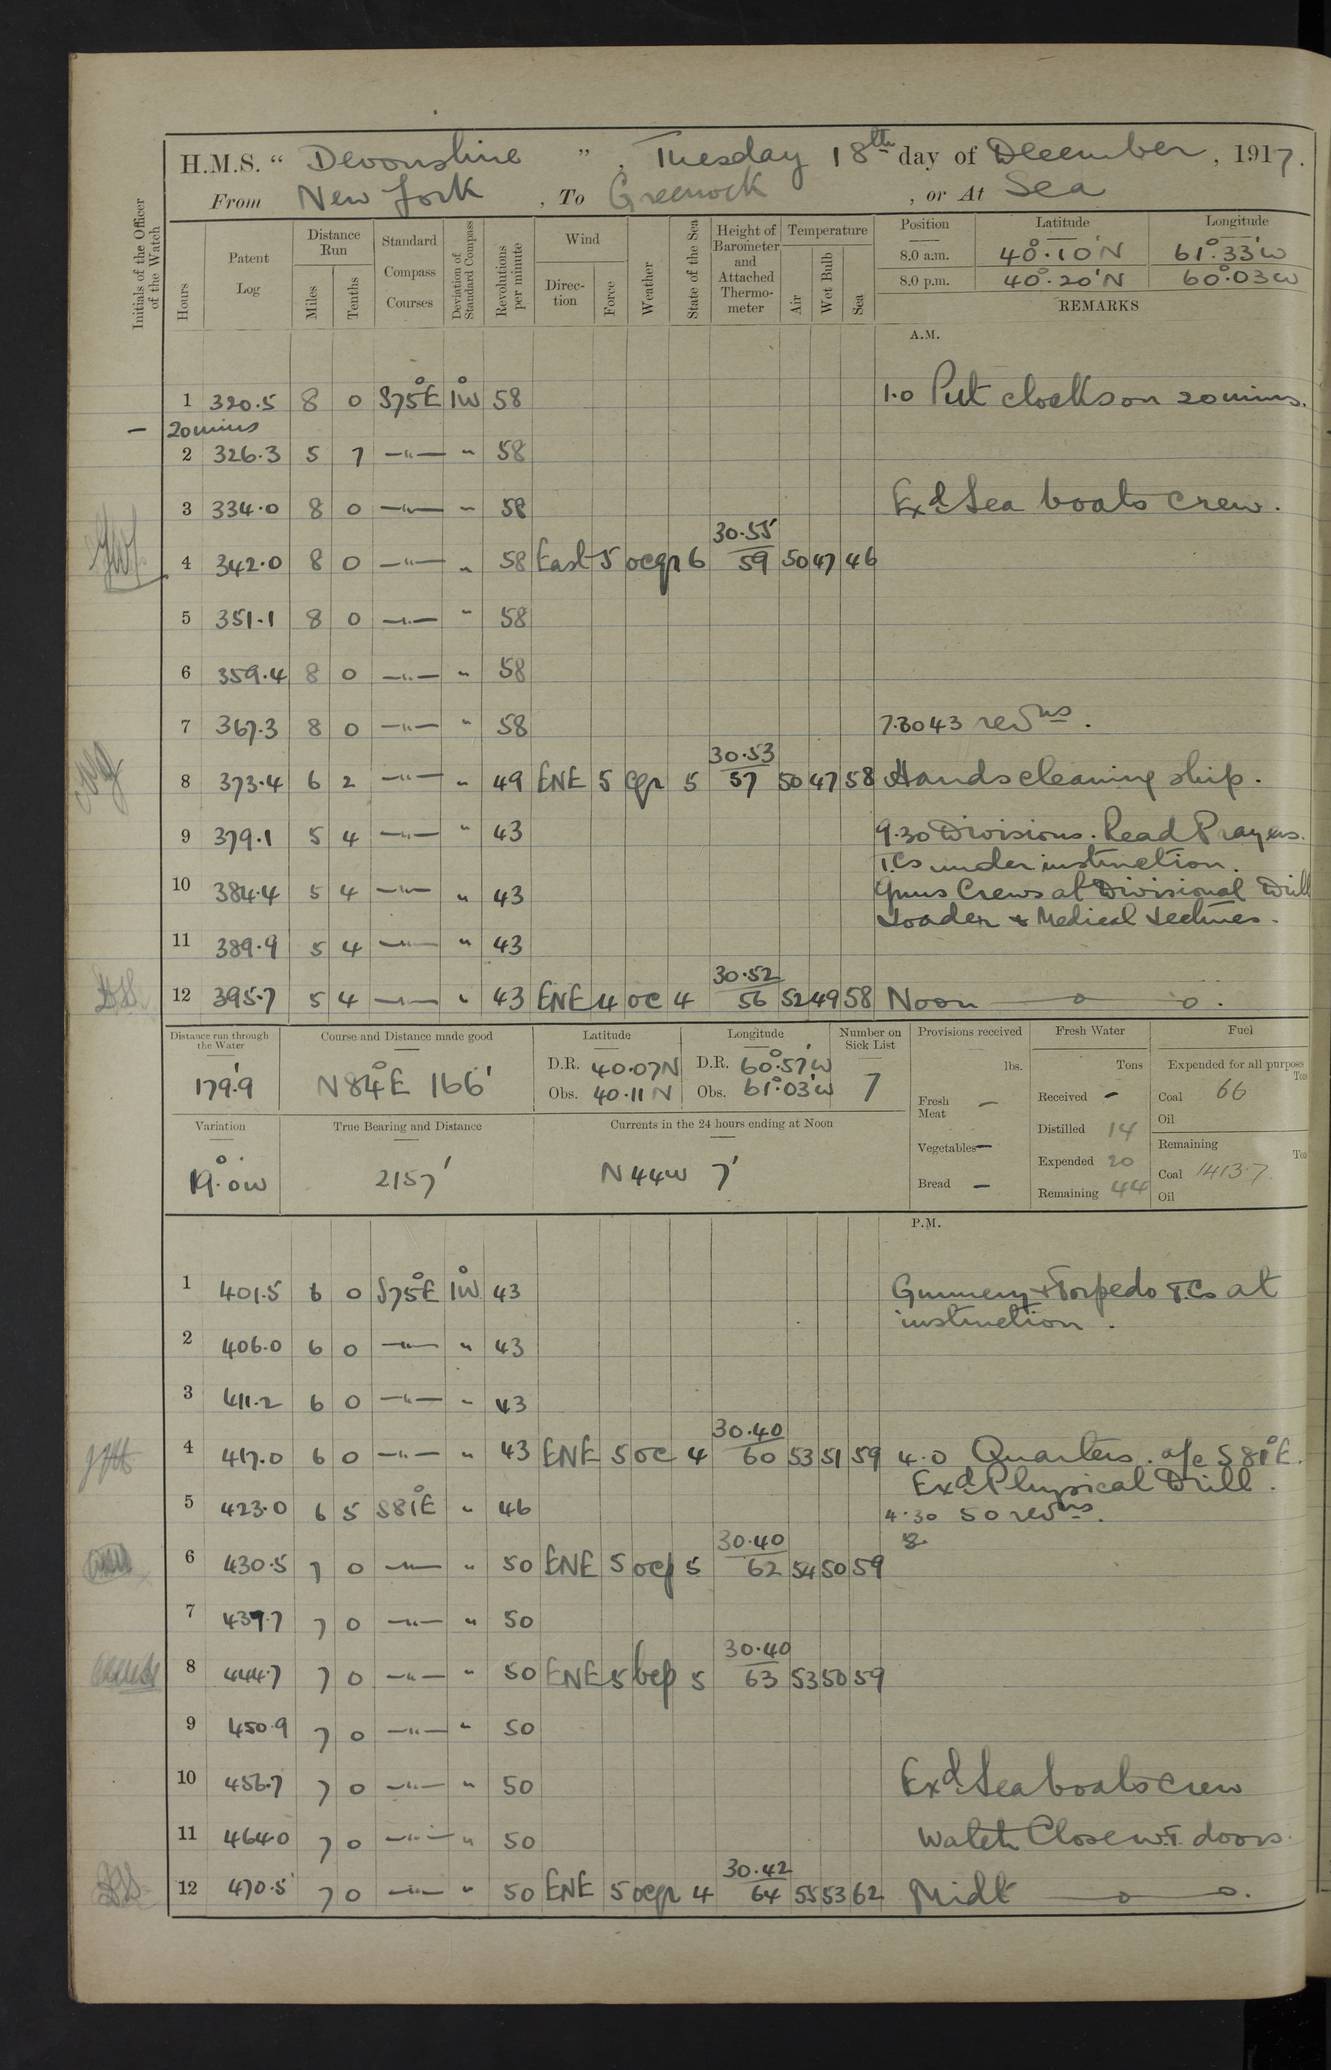 H.M.S. “ Devonshire ” , Tuesday 18th day of December , 1917.
From New York , To Greenock , or At Sea
Initials of the Officer of the Watch
Hours Patent Log Distance Run Miles Tenths Standard Compass Courses Deviation of Standard Compass Revolutions per minute Wind Direction Force Weather State of the Sea Height of Barometer and Attached Thermometer Temperature Air Wet Bulb Sea Position Latitude Longitude
8.0 a.m. 40°.10'N 61°.33'W
8.0 p.m. 40°.20'N 60°.03W
REMARKS
A.M.
1 320.5 8 0 S75°E 1°W 58 1.0 Put clocks on 20 mins.
– 20 mins
2 326.3 5 7 —"— " 58
3 334.0 8 0 —"— " 58 Exd Sea boats crew.
30.55
4 342.0 8 0 —"— " 58 East 5 ocqr 6 59 50 47 46
5 351.1 8 0 —"— " 58
6 359.4 8 0 —"— " 58
7 367.3 8 0 —"— " 58 7.30 43 revns.
30.53
8 373.4 6 2 —"— " 49 ENE 5 cqr 5 57 50 47 58 Hands cleaning ship.
9 379.1 5 4 —"— " 43 9.30 Divisions. Read Prayers.
T.Cs under instruction.
10 384.4 5 4 —"— " 43 Guns Crews at Divisional Drill
Loader & Medical Lectures.
11 389.9 5 4 —"— " 43
30.52
12 395.7 5 4 —"— " 43 ENE 4 oc 4 56 52 49 58 Noon
Distance run through the Water Course and Distance made good Latitude Longitude Number on Sick List Provisions received Fresh Water Fuel
179.9 N84°E 166' D.R. 40.07N D.R. 60°.57'W 7 lbs. Tons Expended for all purpose Tons
Obs. 40.11N Obs. 61°.03'W Fresh Meat — Received – Coal 66
Oil
Variation True Bearing and Distance Currents in the 24 hours ending at Noon Distilled 14
Vegetables — Expended 20 Remaining
19°.0W 2157' N44W 7' Bread — Remaining 44 Coal 1413.7
Oil
P.M.
1 401.5 6 0 S75°E 1°W 43 Gunnery & Torpedo T.Cs at
instruction.
2 406.0 6 0 —"— " 43
3 411.2 6 0 —"— " 43
30.40
4 417.0 6 0 —"— " 43 ENE 5 oc 4 60 53 51 59 4.0 Quarters. a/c S81°E.
Exd Physical Drill.
5 423.0 6 5 S81°E " 46 4.30 50 revns.
30.40
6 430.5 7 0 —"— " 50 ENE 5 ocp 5 62 54 50 59
7 437.7 7 0 —"— " 50
30.40
8 444.7 7 0 —"— " 50 ENE 5 bcp 5 63 53 50 59
9 450.9 7 0 —"— " 50
10 456.7 7 0 —"— " 50 Exd Sea boats crew
11 464.0 7 0 —"— " 50 Watch Close W.T. doors.
30.42
12 470.5 7 0 —"— " 50 ENE 5 ocqr 4 64 55 53 62 Midt